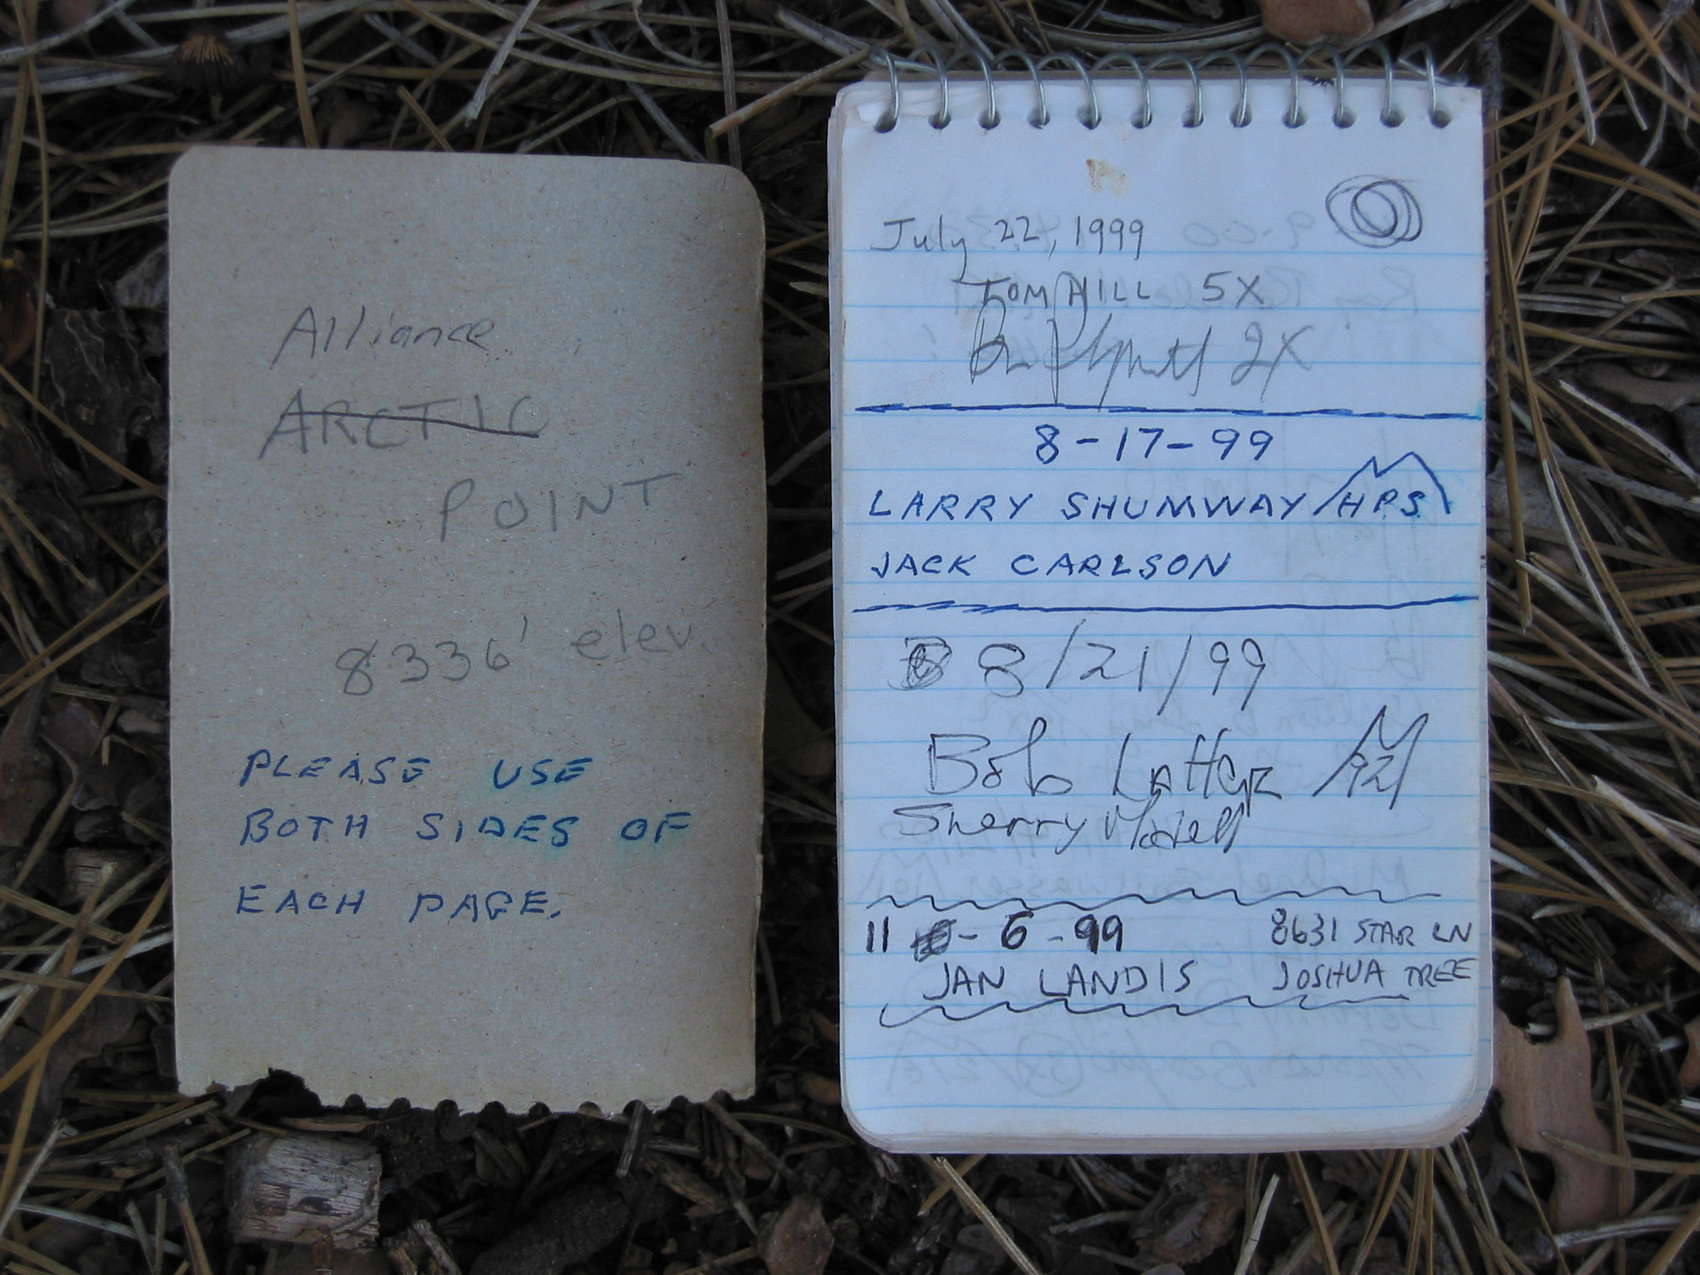 Alliance
ARCTIC
POINT
8336' elev.
PLEASE USE
BOTH SIDES OF
EACH PAGE.
July 22, 1999
TOM HILL 5X
2X
8-17-99
LARRY SHUMWAY HPS
JACK CARLSON
8/21/99
Bob
Sherry
11 - 6 - 99 8631 STAR LN
JAN LANDIS JOSHUA TREE